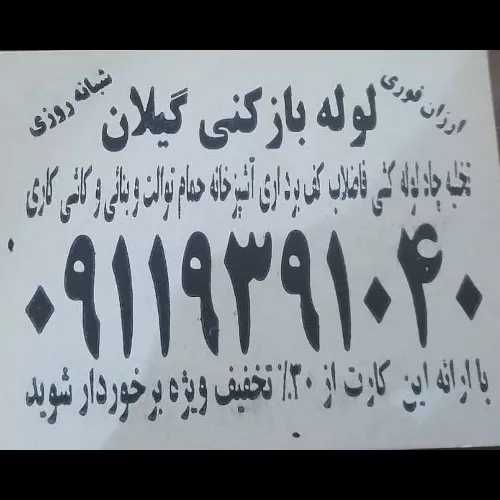 ارزان فوری
شبانه روزی
لوله بازکنی گیلان
تخلیه چاه لوله کشی فاضلاب کف برداری آشپزخانه حمام توالت و بنائی و کاشی کاری
۰۹۱۱۹۳۹۱۰۴۰
با ارائه این کارت از ۳۰٪ تخفیف ویژه برخوردار شوید